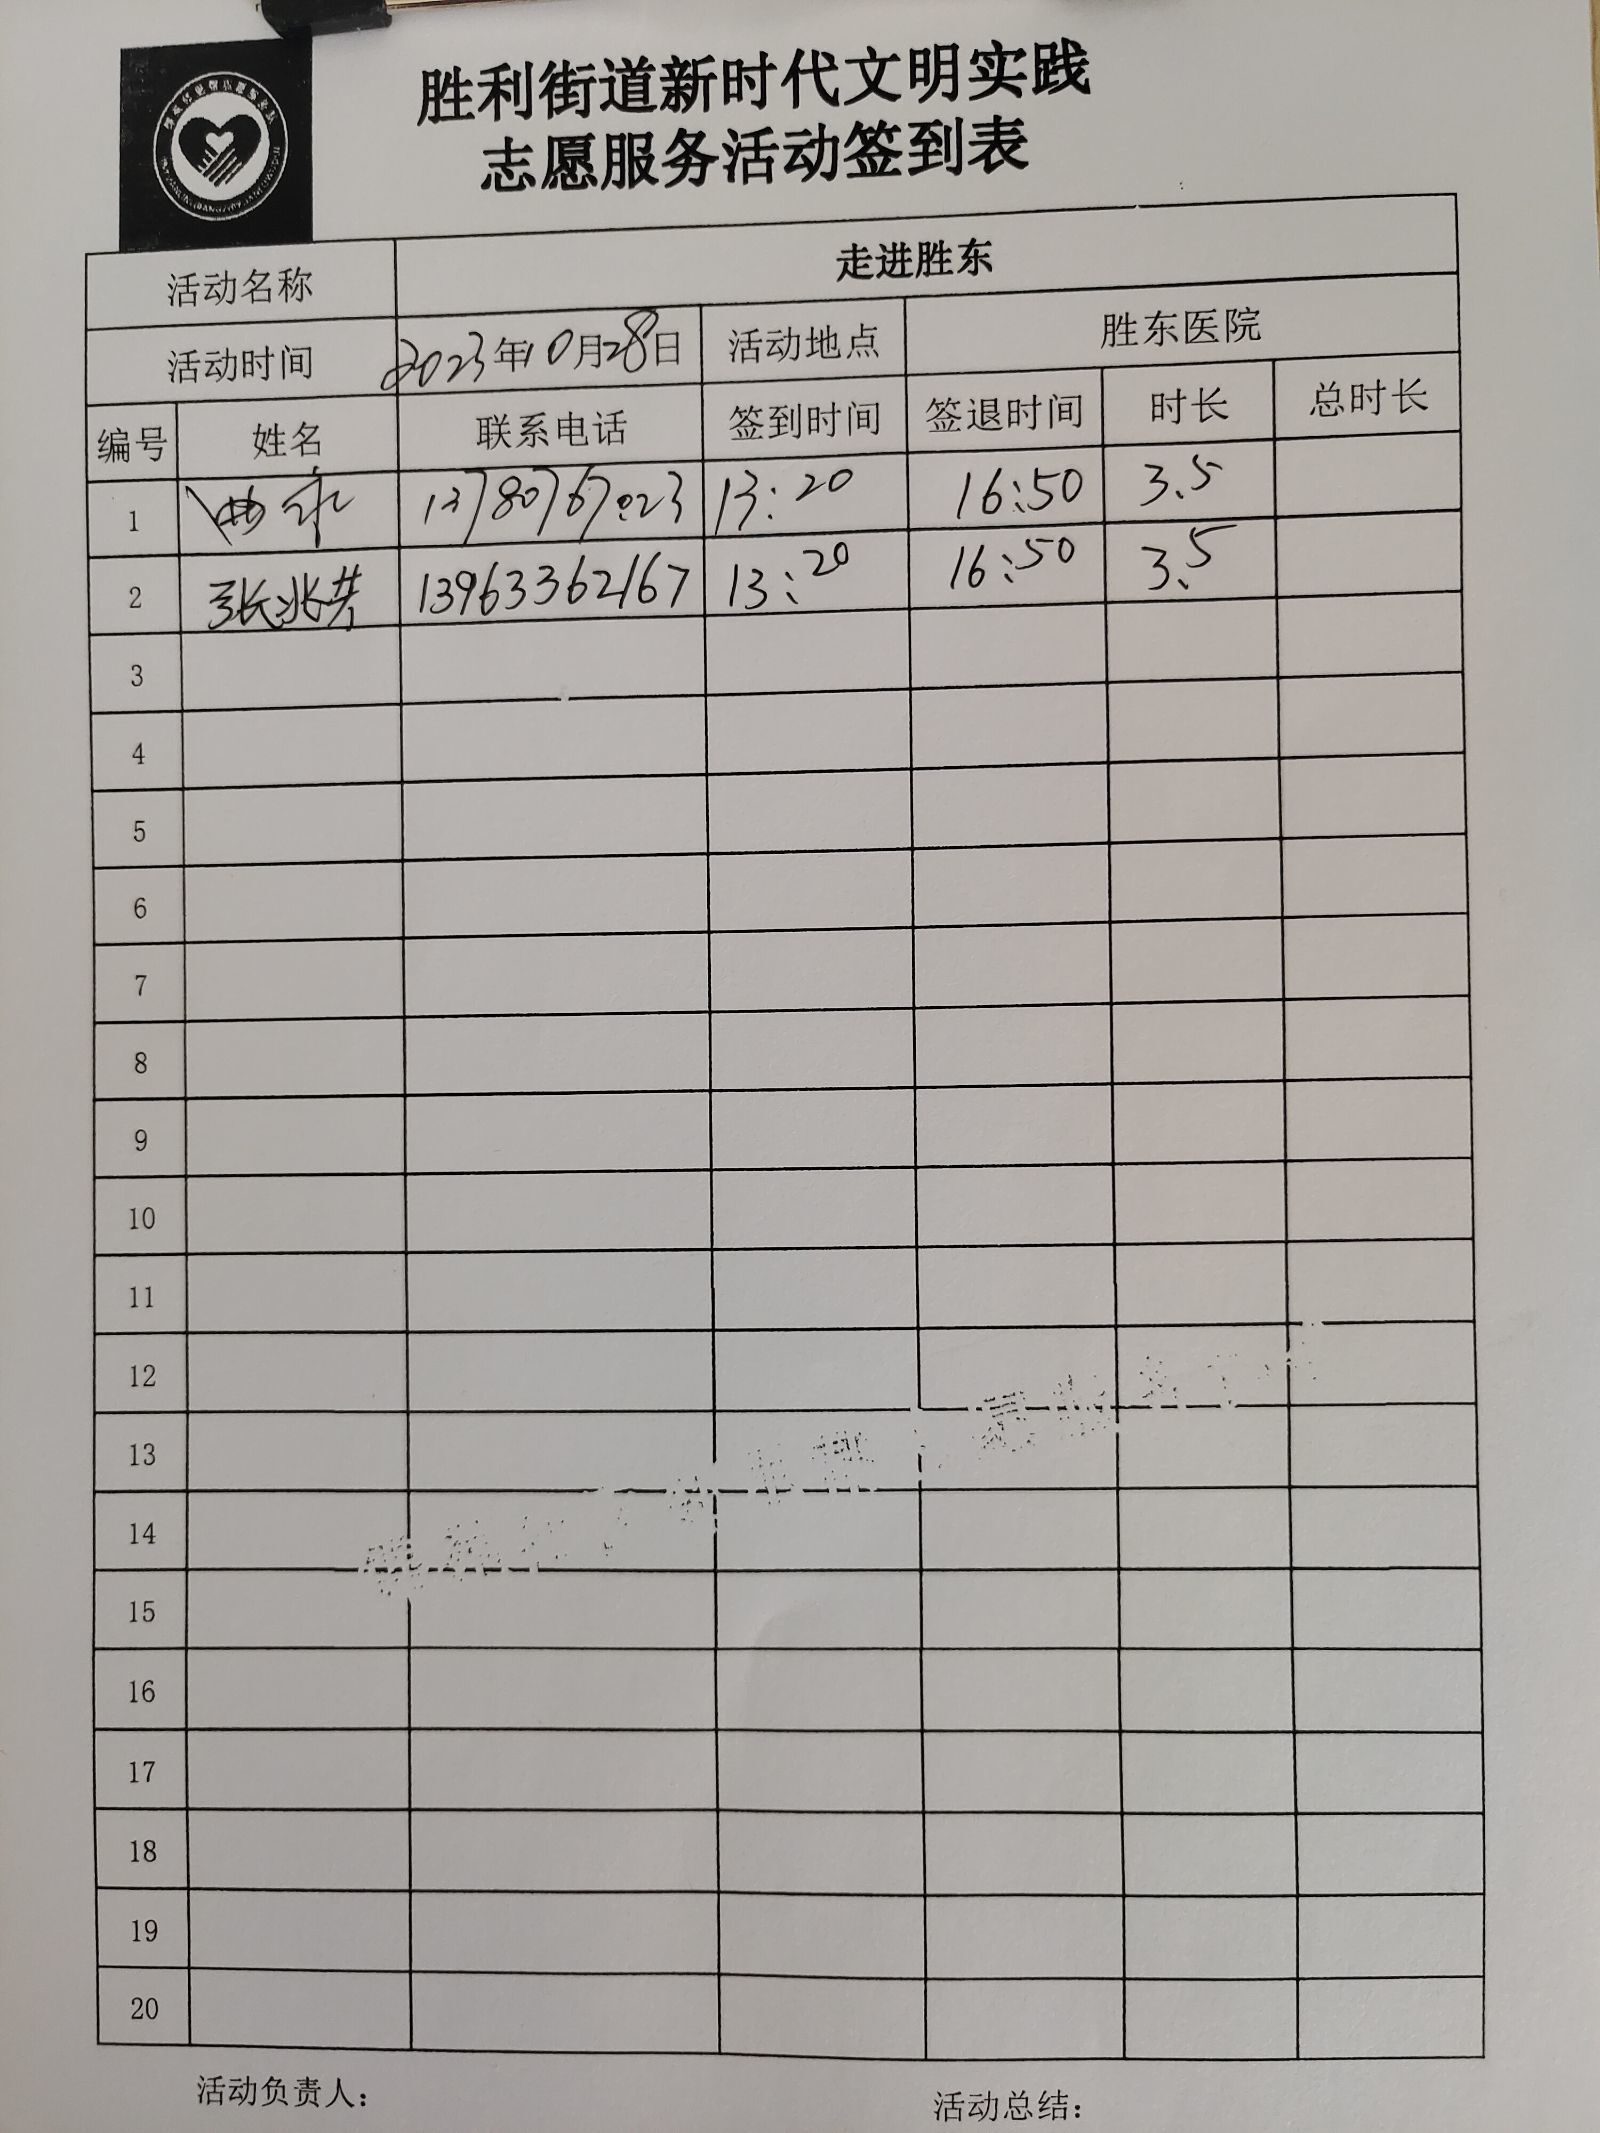 胜利街道新时代文明实践
志愿服务活动签到表
活动名称 走进胜东
活动时间 2023年10月28日 活动地点 胜东医院
编号 姓名 联系电话 签到时间 签退时间 时长 总时长
1 13780767023 13:20 16:50 3.5
2 张兆芳 13963362167 13:20 16:50 3.5
3
4
5
6
7
8
9
10
11
12
13
14
15
16
17
18
19
20
活动负责人: 活动总结: